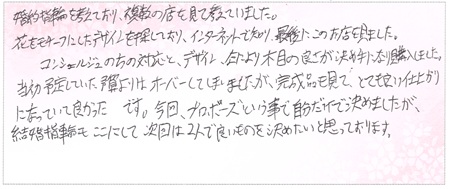 婚約指輪を考えており、複数の店を見て考えていました。
花をモチーフにしたデザインを探しており、インターネットで知り、最後にこのお店を見ました。
コンシェルジュの方の対応と、デザイン、何より木目の良さが決め手になり購入しました。
当初予定していた予算よりはオーバーしてしまいましたが、完成品を見て、とても良い仕上がり
になっていて良かったです。今回、プロポーズという事で自分だけで決めましたが、
結婚指輪もここにして次回は2人で良いものを決めたいと思っております。